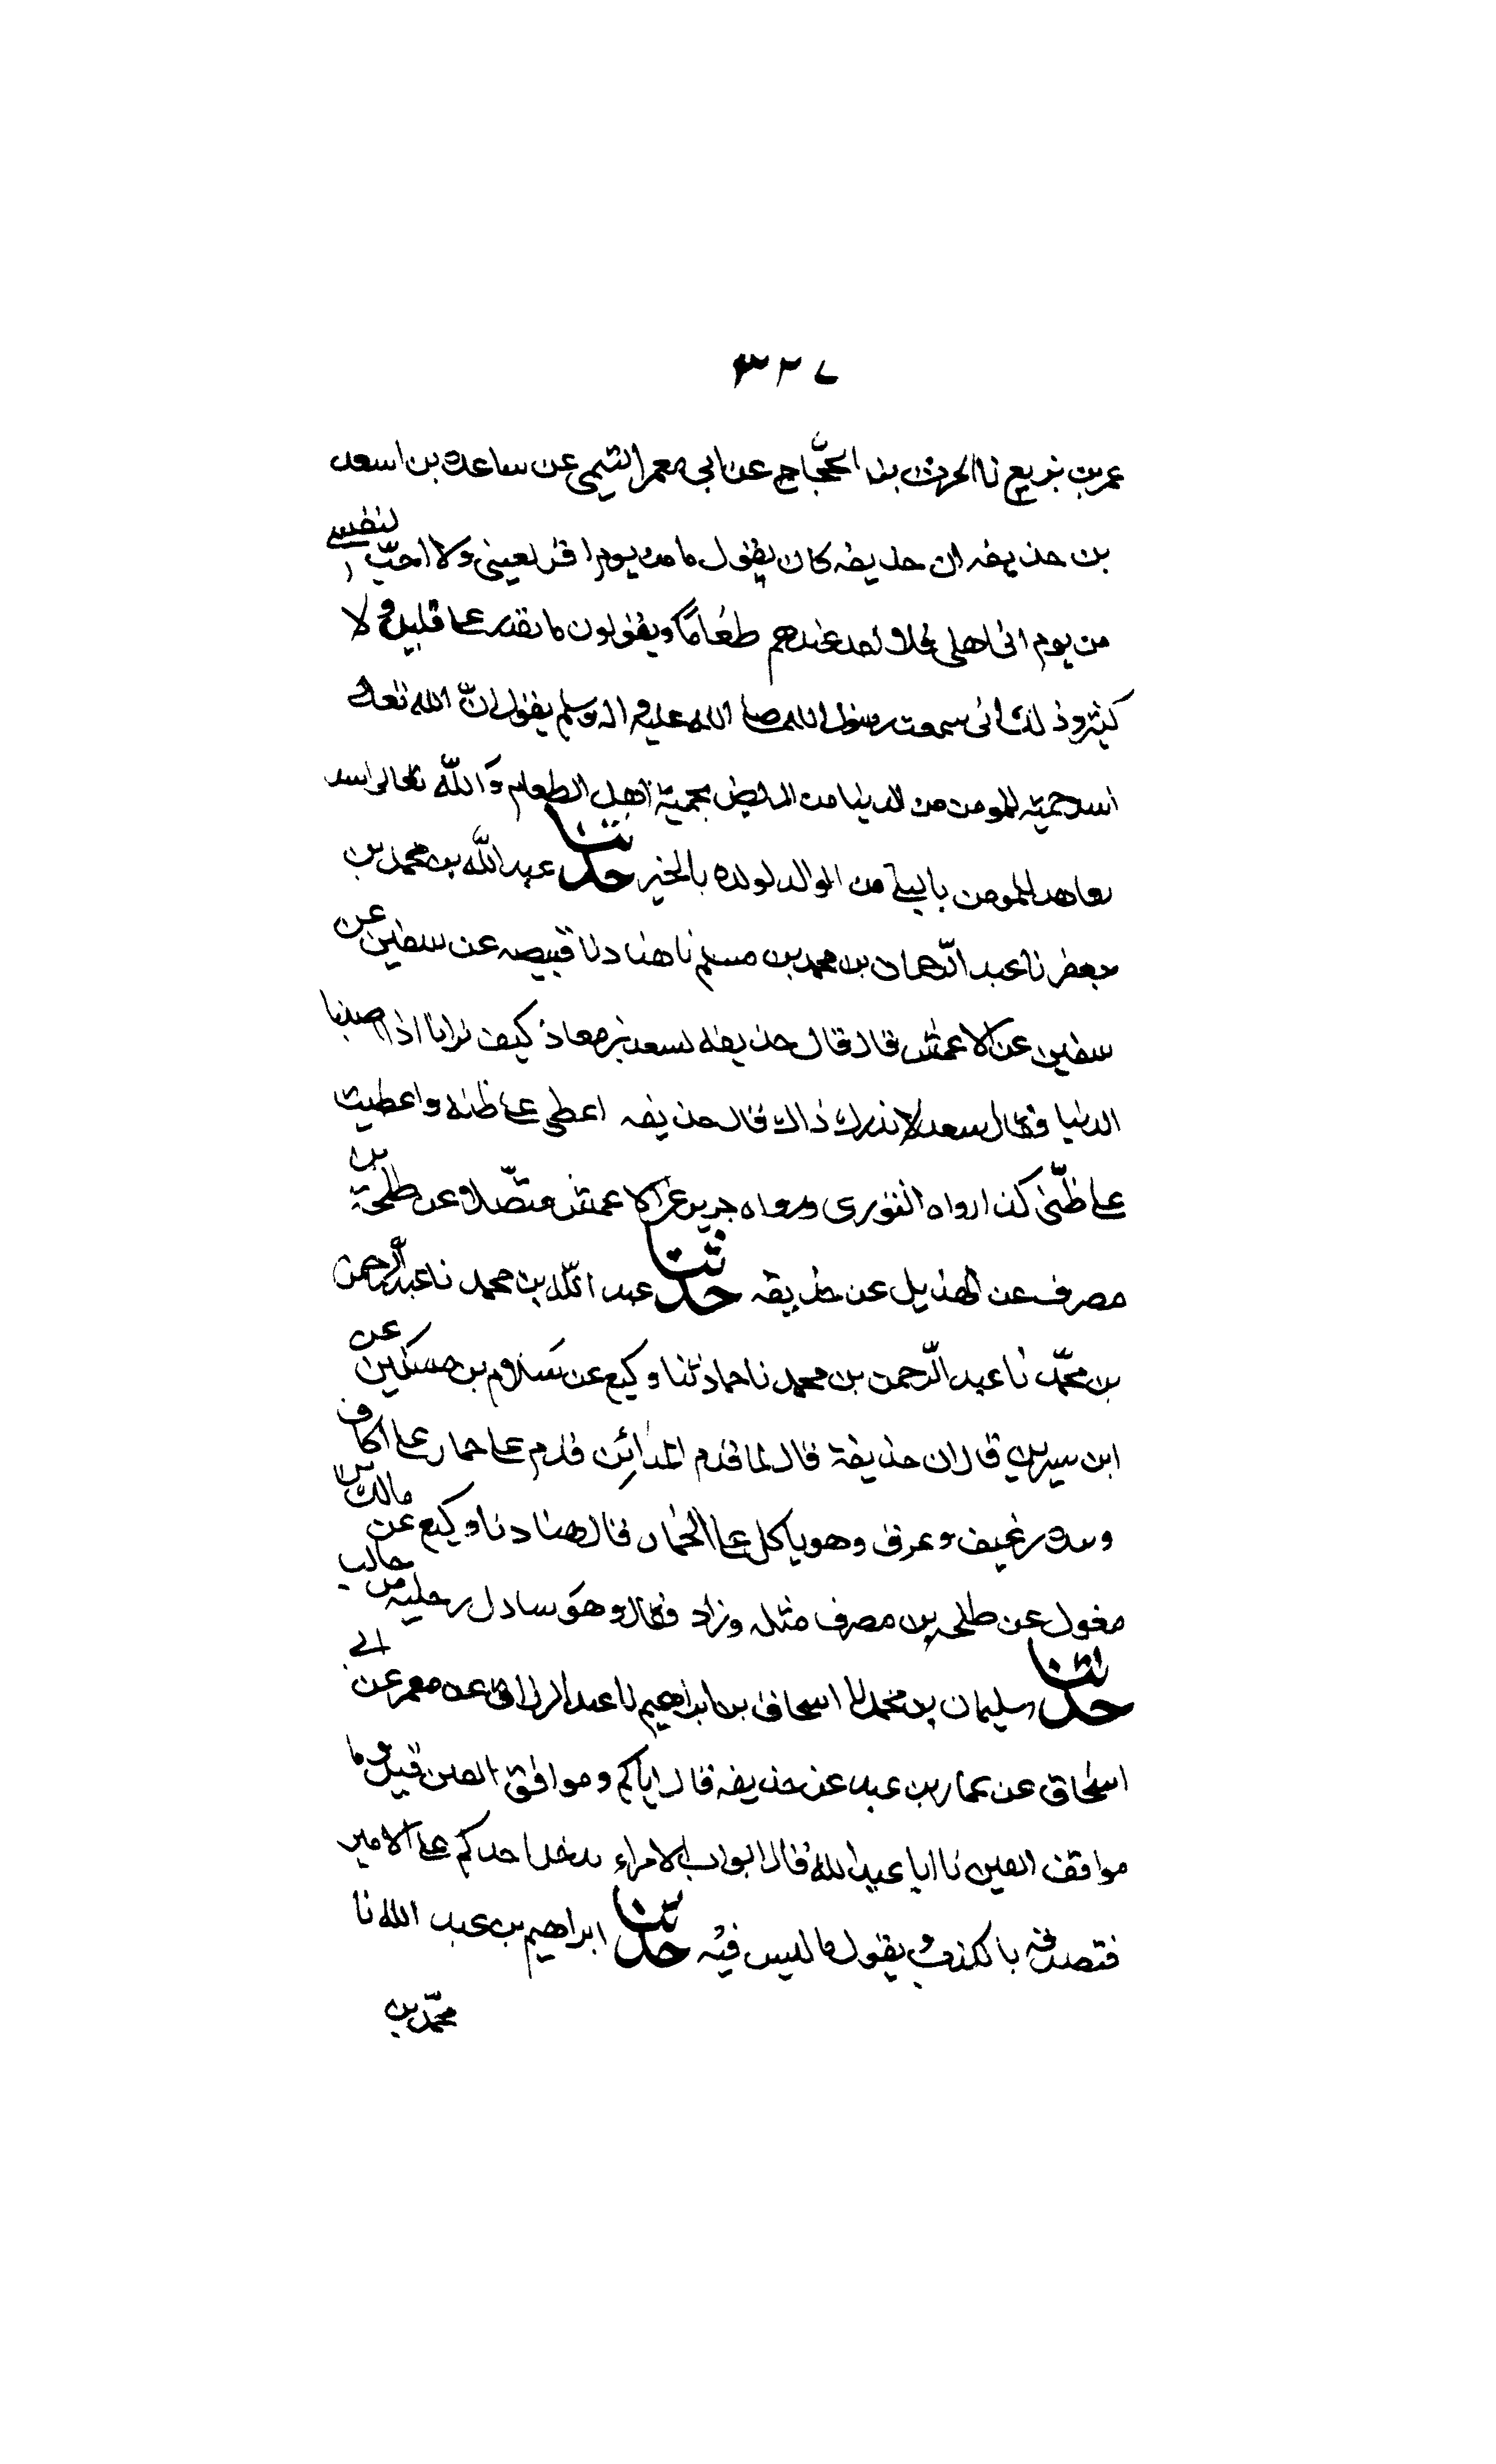 ٣٢٧
عمر بن بزيع نا الحرث بن الحجّاج عن ابي معمر التيمى عن ساعدة بن اسعد
بن حذيفه ان حذيفه كان يقول ما من يوم اقر لعينى ولا احبّ لنفسى
من يوم اتى اهلى فلا اجد عندهم طعامًا ويقولون ما نقدر على قليل ولا
كثير وذلك انى سمعت رسول الله صلى الله عليه واله وسلم يقول انّ الله تعالى
اشد حمية للمومن من الدنيا من المريض بحمية اهله الطعام والله تعالى اشد
تعاهدا للمومن بالبلى من الوالد لولده بالخير حدثنا عبد الله بن محمد بن
جعفر نا عبد الرّحمان بن محمد بن مسلم نا هناد نا قبيصه عن سفين عن
سفين عن الاعمش قال قال حذيفه لسعد بن معاذ كيف ترانا اذا اصبنا
الدنيا فقال سعد لا ندرك ذاك قال حذيفه اعطى على ظنه واعطيت
على ظنّى كذا رواه الثورى ورواه جرير عن الاعمش متّصلا عن طلحة بن
مصرف عن الهذيل عن حذيفه حدثنا عبد الله بن محمد نا عبد الرحمن
بن محمّد نا عبد الرّحمن بن محمد نا حماد ثنا وكيع عن سلام بن مسكين عن
ابن سيرين قال ان حذيفة قال لما قدم المدائن قدم على حمار على اكاف
وبيده رغيف وعرق وهو ياكل على الحمار فقال هناد نا وكيع عن مالك بن
مغول عن طلحه بن مصرف مثله وزاد فقال وهو سادل رجليه من جانب
حدثنا سليمان بن محمد نا اسحاق بن ابراهيم نا عبد الرزاق عن معمر عن ابى
اسحاق عن عمار بن عبد عن حذيفه قال اياكم ومواقف الفتن قيل وما
مواقف الفتن نا ابا عبد الله قال ابواب الامراء يدخل احدكم على الامير
فتصدقه بالكذب ويقول ما ليس فيه حدثنا ابراهيم بن عبد الله نا
محمّد بن